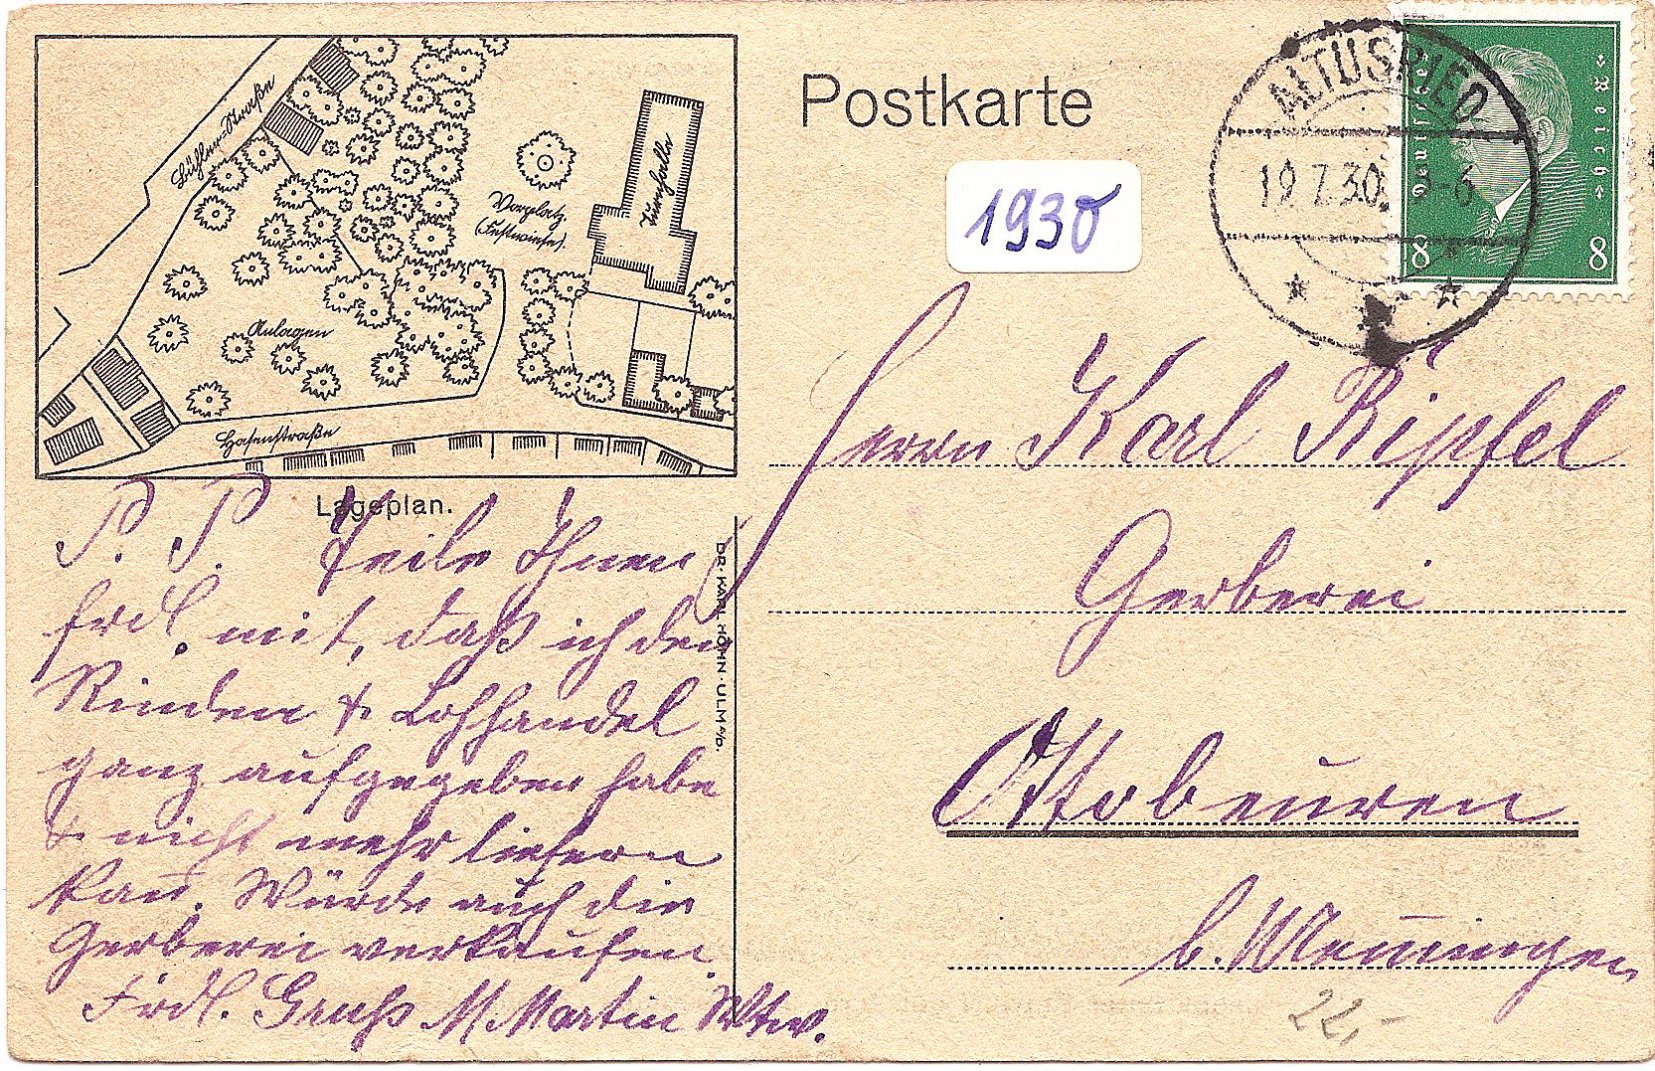 Postkarte
1930
ALTUSRIED
19.7.30. 5-6
Deutsches Reich
8 8
Bühlen-Straße
Turnhalle
Vorplatz
(Festwiese).
Anlagen
Hafenstraße
Lageplan.
DR. KARL HÖHN · ULM a/D.
P. P. Teile Ihnen
frdl. mit, daß ich den
Rinden & Lohhandel
ganz aufgegeben habe
& nicht mehr liefern
kan̄. Würde auch die
Gerberei verkaufen.
Frdl. Gruß M. Martin Wtw.
Herrn Karl Ripfel
Gerberei
Ottobeuren
b. Mem̄ingen
22,-